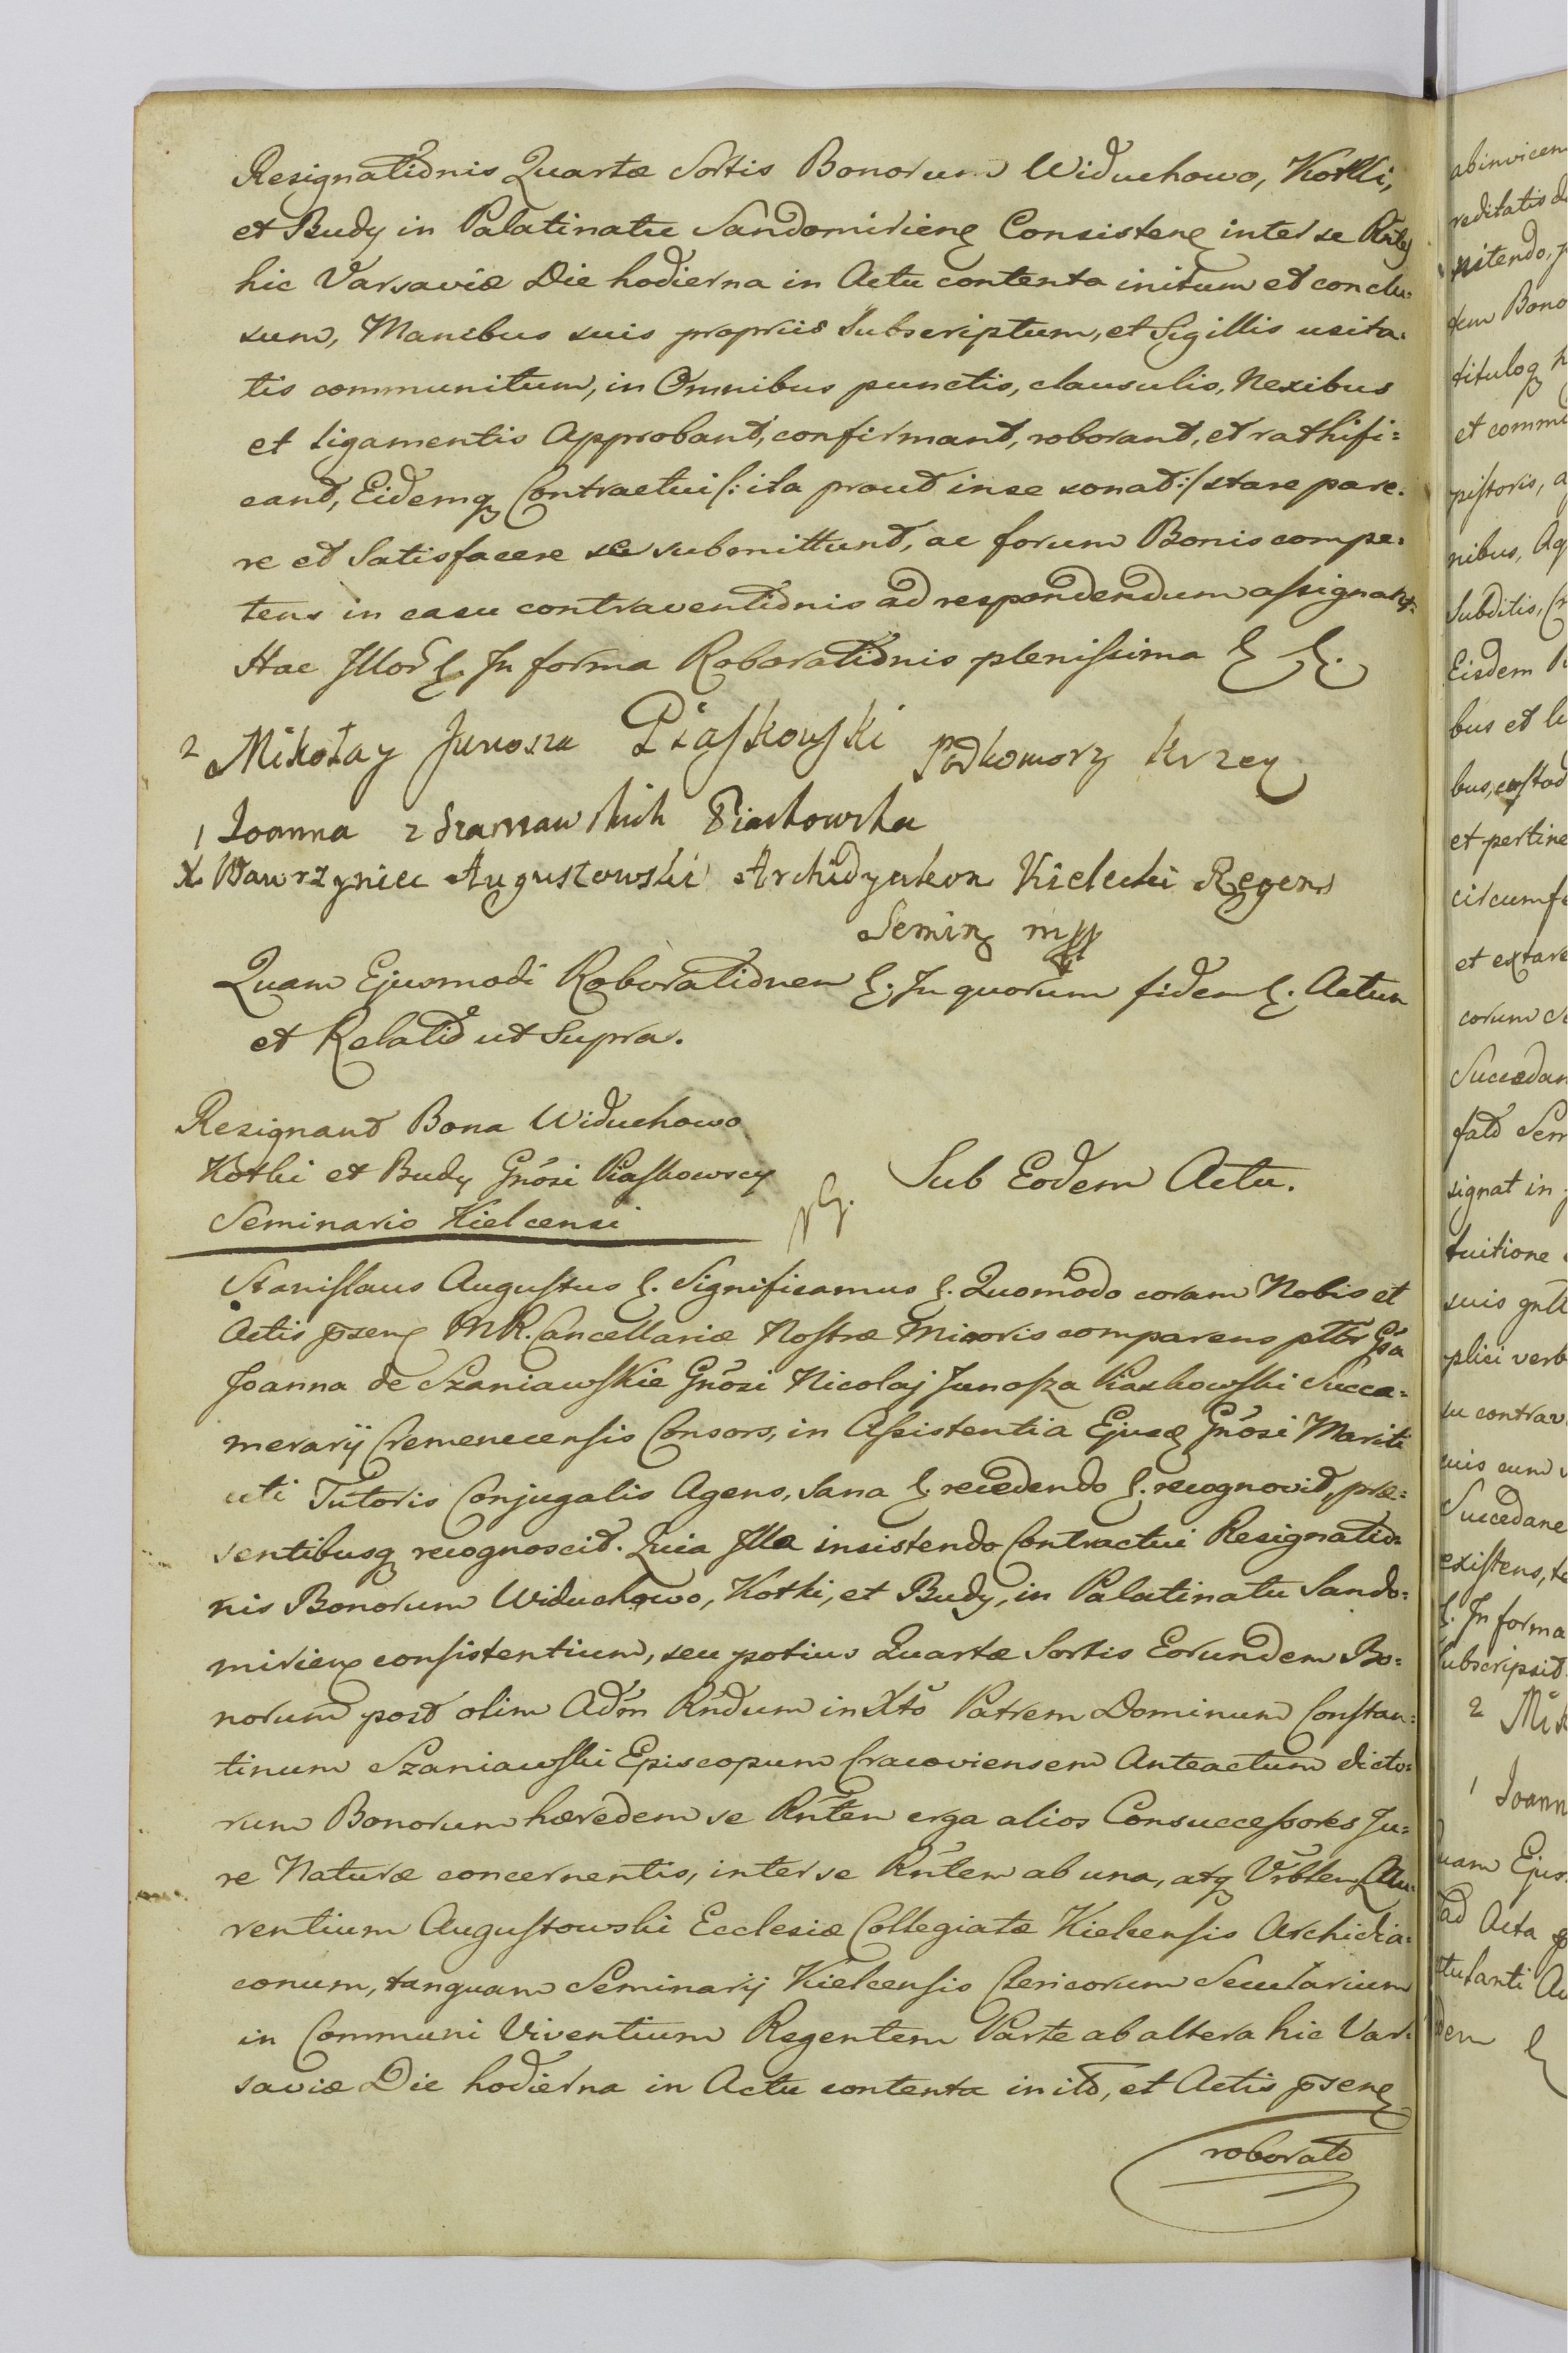 Resignationis Quartæ Sortis Bonorum Widuchowo, Kotki,
et Budy in Palatinatu Sandomiriens Consistens inter se Rntes
hic Varsaviæ Die hodierna in Actu contenta initum et conclu=
sum, Manibus suis propriis Subscriptum, et Sigillis usita=
tis communitum, in Omnibus punctis, clausulis, Nexibus
et ligamentis Approbant, confirmant, roborant, et rathifi=
cant, Eidemq Contractui /: ita prout in se sonat :/ stare pare=
re et Satisfacere se submittunt, ac forum Bonis compe=
tens in casu contraventionis ad respondendum assignant.
Hac Illor &. In forma Roborationis plenissima & &.
2 Mikołay Junosza Piaskowski Podkomorz Krzem
1 Joanna z Szaniawskich Piaskowska
X Wawrzyniec Augustowski Archidyakon Kielecki Regens
Semin mpp
Quam Ejusmodi Roborationem &. In quorum fidem &. Actum
et Relatio ut Supra.
Resignant Bona Widuchowo
Kotki et Budy Gnosi Piaskowscy
Seminario Kielcensi
Sub Eodem Actu.
Stanislaus Augustus &. Significamus &. Quomodo coram Nobis et
Actis psens MR. Cancellariæ Nostræ Minoris comparens pltr Gsa
Joanna de Szaniawskie Gnosi Nicolaj Junosza Piaskowski Succa=
merarij Cremenecensis Consors, in Assistentia Ejusd Gnosi Mariti
uti Tutoris Conjugalis Agens, Sana & recedendo &. recognovit, præ=
sentibusq recognoscit. Quia Illa insistendo Contractui Resignatio=
nis Bonorum Widuchowo, Kotki, et Budy, in Palatinatu Sando=
miriens consistentium, seu potius Quartæ Sortis Eorundem Bo=
norum post olim Adm Rndum in Xto Patrem Dominum Constan=
tinum Szaniawski Episcopum Cracoviensem Anteactum dicto=
rum Bonorum hæredem se Rntem erga alios Consuccessores Ju=
re Naturæ concernentis, inter se Rntem ab una, atq Vrblem Lau=
rentium Augustowski Ecclesiæ Collegiatæ Kielcensis Archidia=
conum, tanquam Seminarij Kielcensis Clericorum Secularium
in Communi Viventium Regentem Parte ab altera hic Var=
saviæ Die hodierna in Actu contenta inito, et Actis psens
roborato